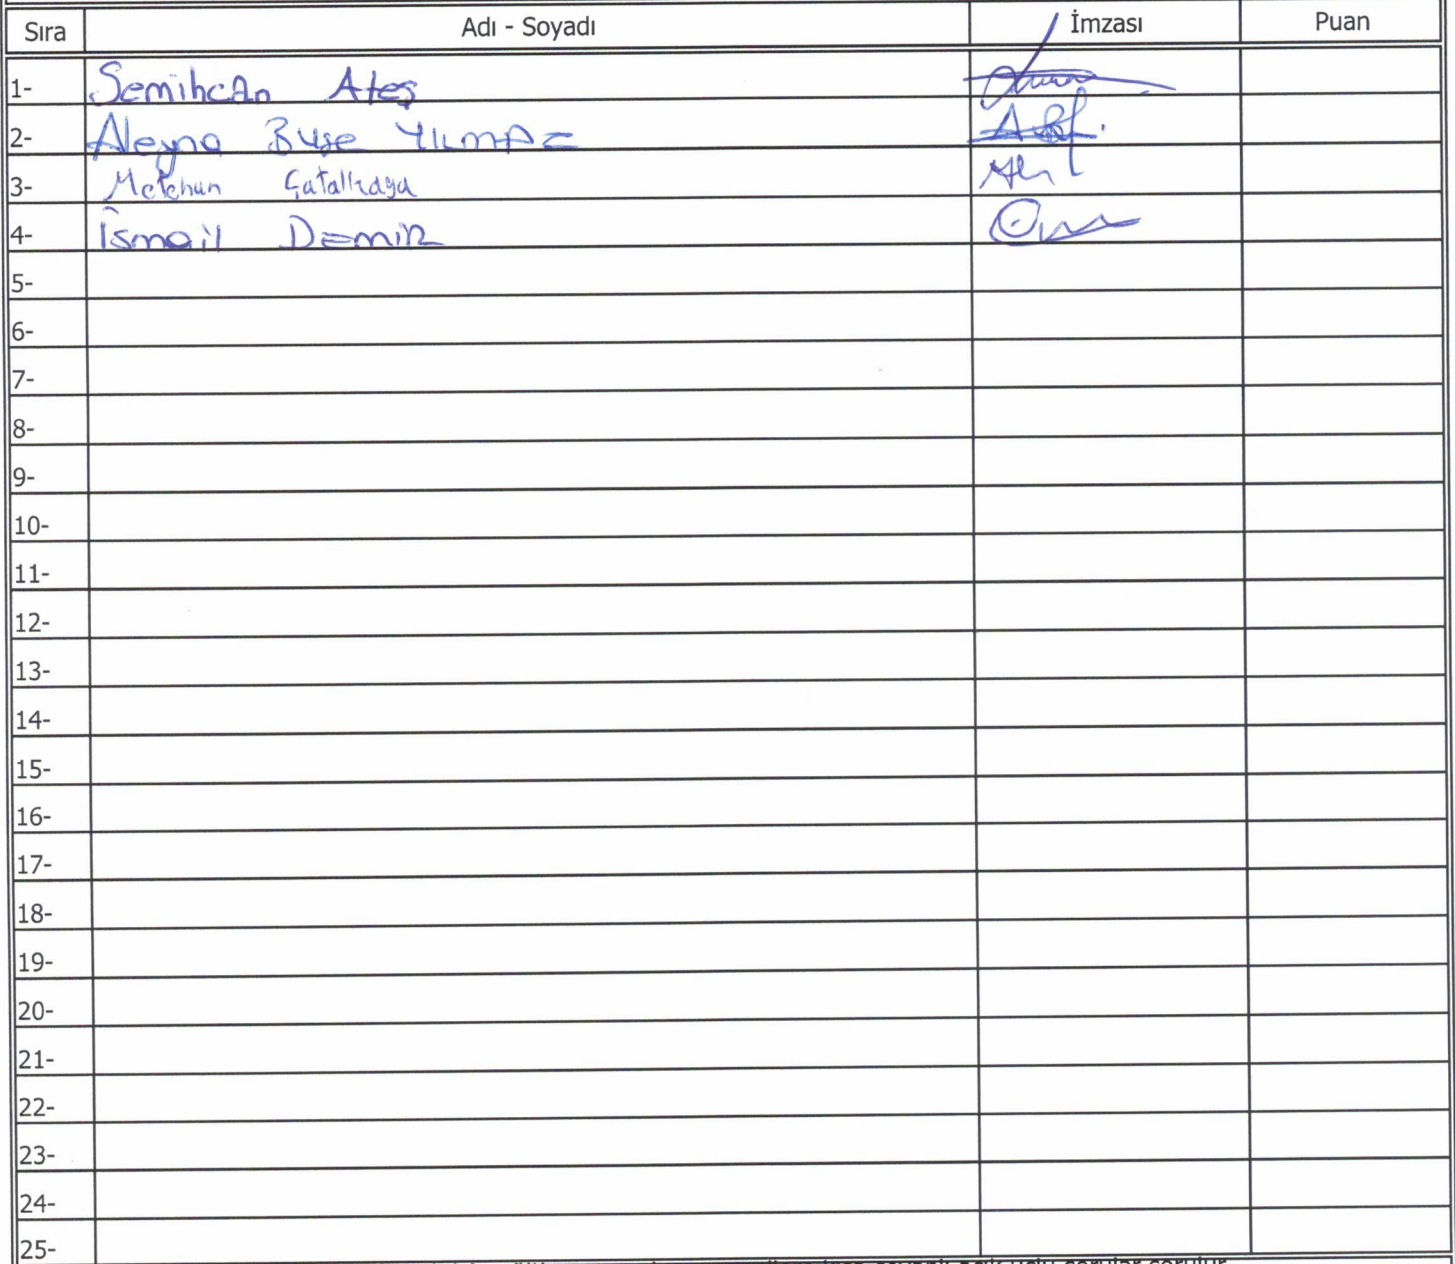 Sıra Adı - Soyadı İmzası Puan
1- Semihcan Ateş
2- Aleyna Buşe Yılmaz
3- Metehan Çatalkaya
4- İsmail Demir
5-
6-
7-
8-
9-
10-
11-
12-
13-
14-
15-
16-
17-
18-
19-
20-
21-
22-
23-
24-
25-